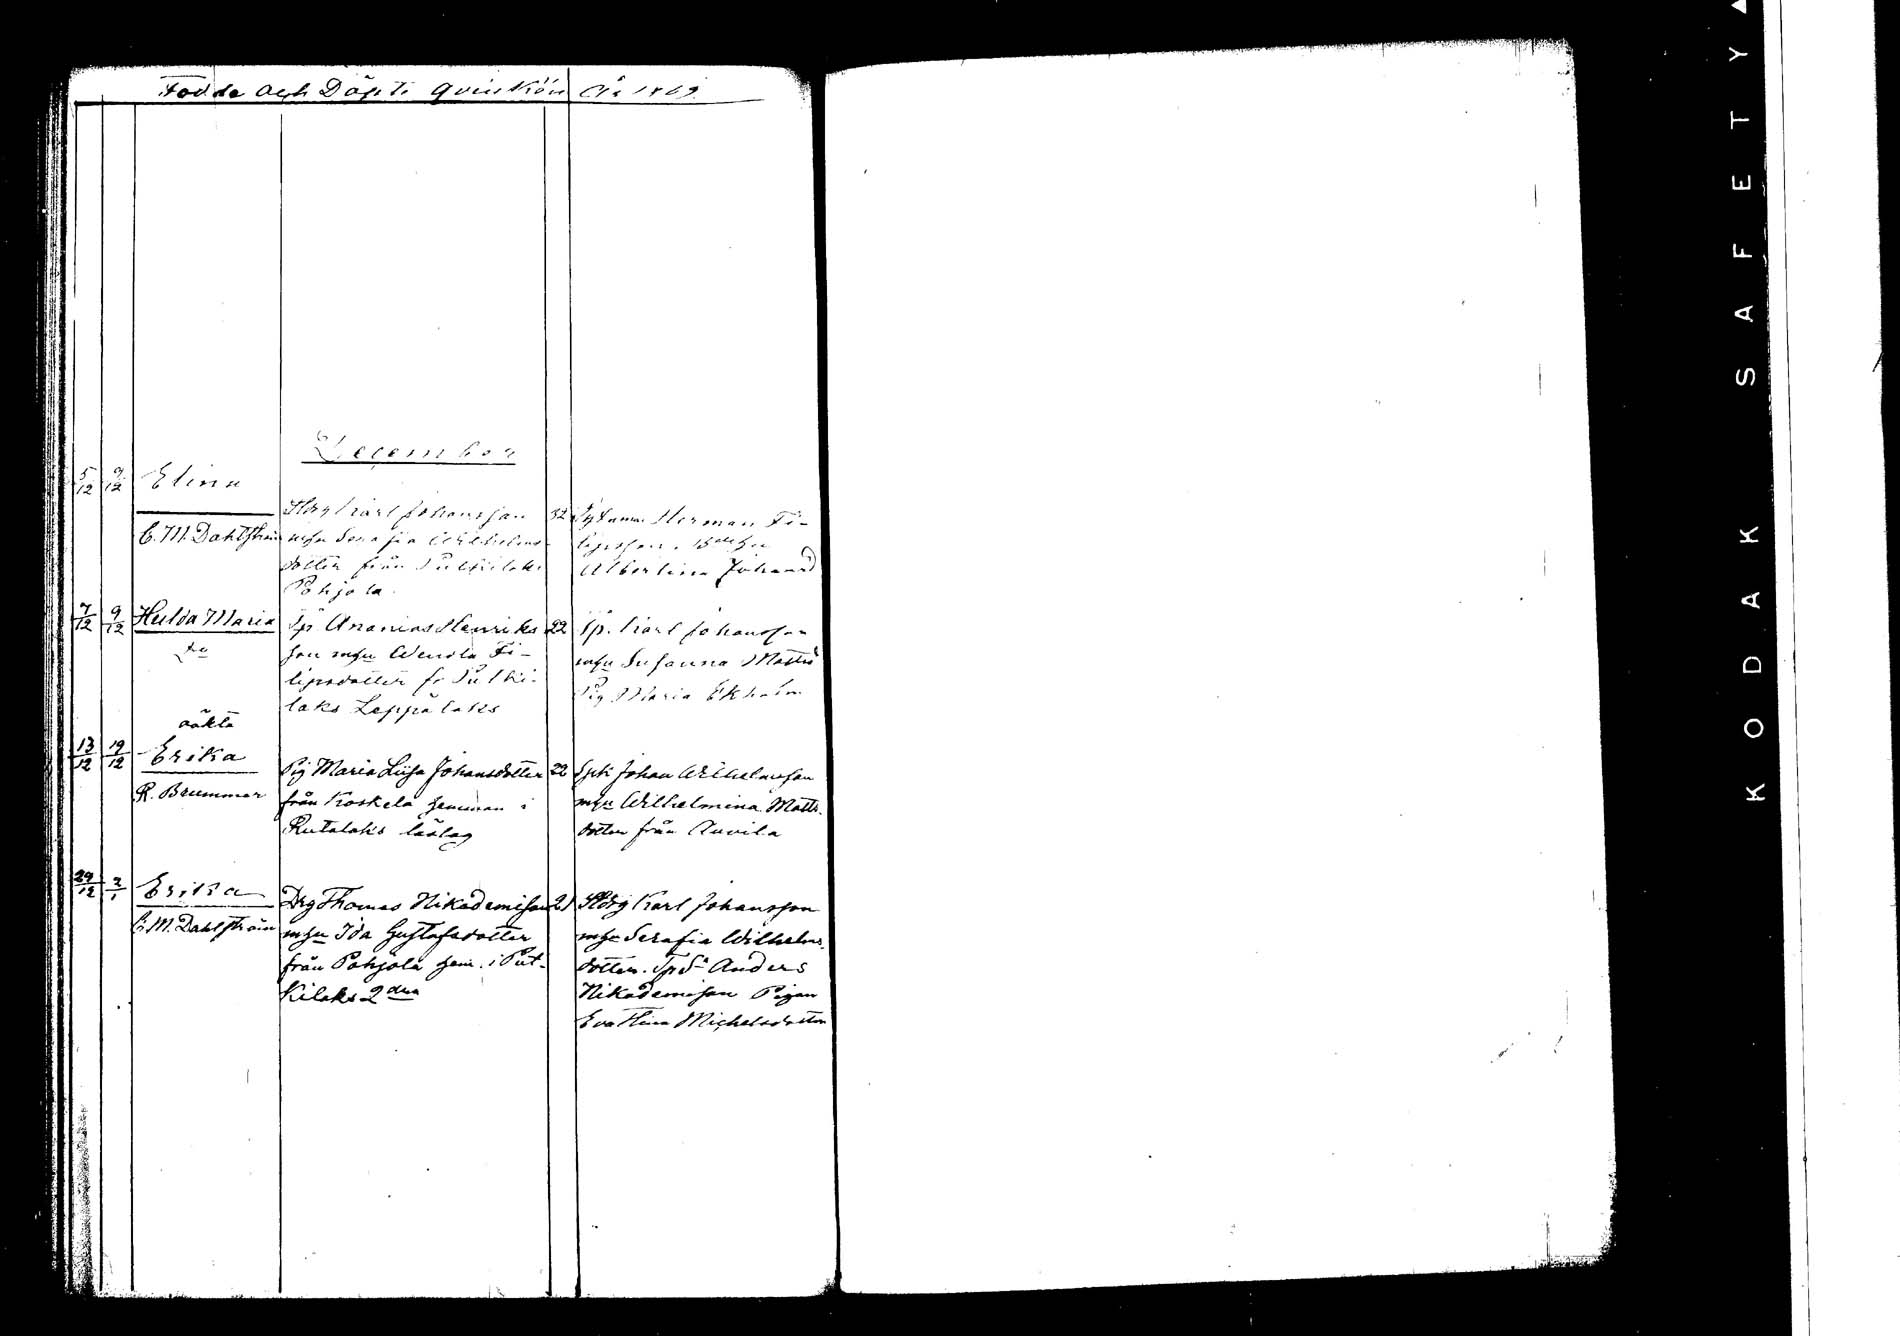 Födde och Döpte Qvinkön År 1869.
December
5/12 9/12 Elina
C. M. Dahlström
Hbg Karl Johansson 32
mhu Serafia Wilhelms-
dotter från Putkilaks
Pohjola.
Herman Fi-
lipsson.
Albertina Johansd
7/12 9/12 Hulda Maria
do
Tp. Ananias Henriks 22
son mhu Wendla Fi-
lipsdotter fr Putki-
laks Leppälaks
Tp. Karl Johansson
mhu Susanna Matts
Pig Maria Ekholm
oäkta
13/12 19/12 Erika
R. Brummer
Pig Maria Liisa Johansdotter 22
från Koskela hemman i
Rutalaks läslag
Johan Wilhelmsson
mhu Wilhelmina Matts-
dotter från Auvila
29/12 2/1 Erika
C. M. Dahlström
Drg Thomas Nikodemison 21
mhu Ida Gustafsdotter
från Pohjola hem. i Put-
kilaks 2dra
Hbg Karl Johansson
mhu Serafia Wilhelms-
dotter. Tp Sn Anders
Nikodemison Pigan
Eva Stina Michelsdotter
KODAK SAFETY